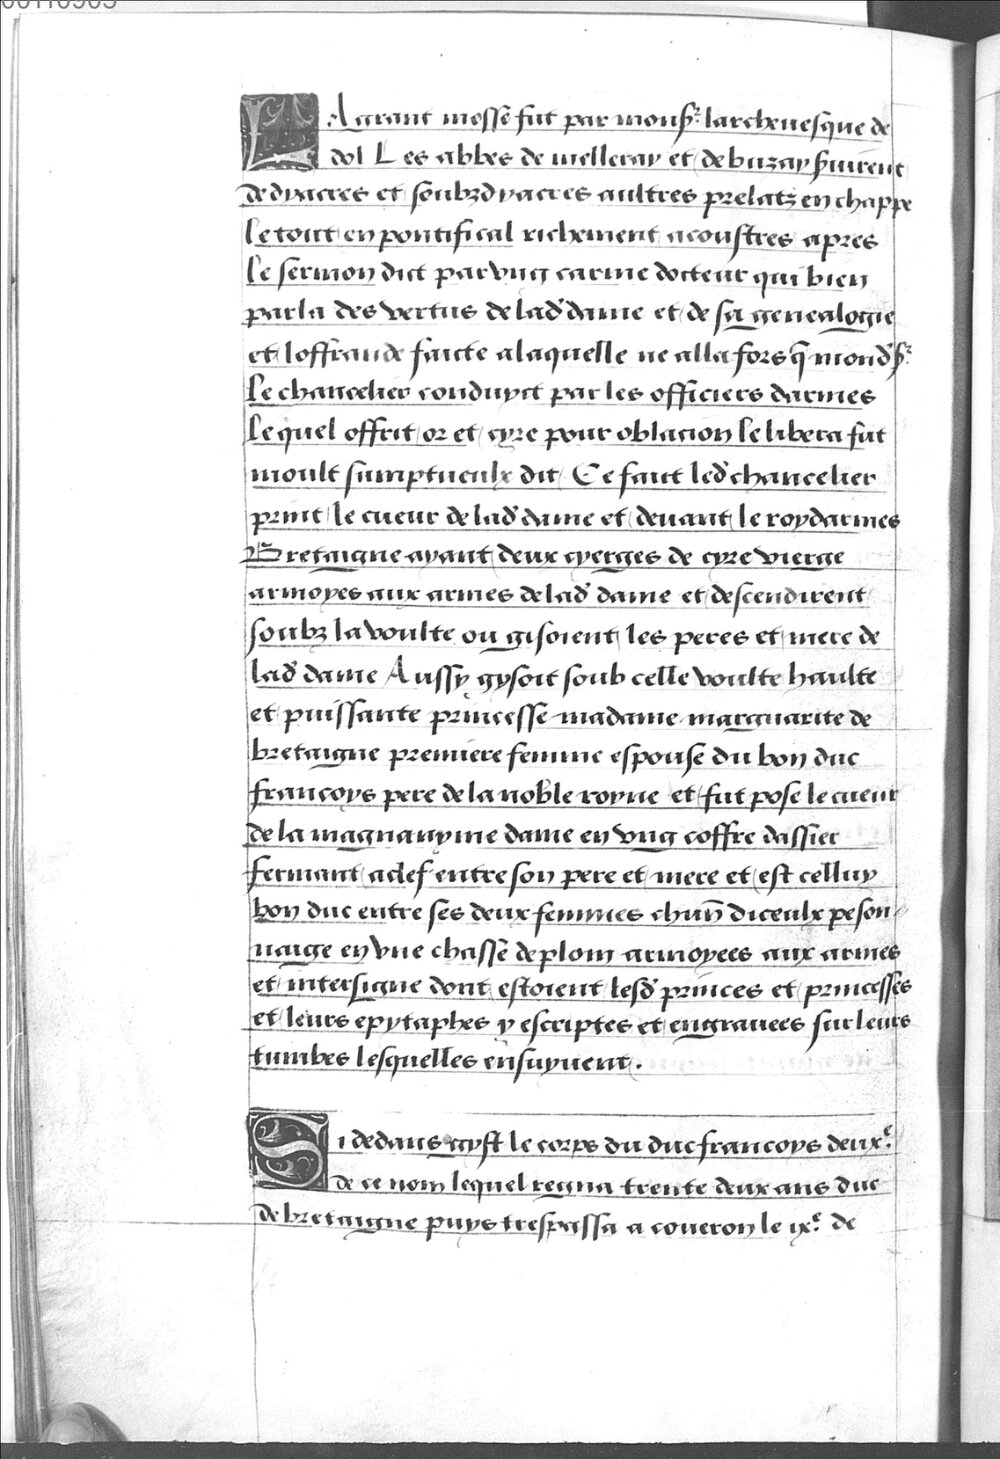 00110905
LA grant messe fut par monsr. larchevesque de
dol Les abbes de melleray et de buzay svirent
de dyacres et soubzdyacres aultres prelatz en chappe
le tout en pontifical richement acoustres apres
le sermon dict par ung carme docteur qui bien
parla des vertus de lad dame et de sa genealogie
et loffrande faicte a laquelle ne alla fors q mondsr.
le chancelier conduyct par les officiers darmes
le quel offrit or et cyre pour oblacion le libera fut
moult sumptueulx dit Ce faict led chancelier
print le cueur de lad dame et devant le roy darmes
Bretaigne ayant deux cyerges de cyre vierge
armoyes aux armes de lad dame et descendirent
soubz la voulte ou gisoient les peres et mere de
lad dame Aussy gysoit soub celle voulte haulte
et puissante princesse madame marguarite de
bretaigne premiere femme espouse du bon duc
francoys pere de la noble royne et fut pose le cueur
de la magnanyme dame en ung coffre dassier
fermant a clef entre son pere et mere et est celluy
bon duc entre ses deux femmes chun diceulx peson
naige en une chasse de plom armoyees aux armes
et intersigne dont estoient lesd princes et princesses
et leurs epytaphes y escriptes et engravees sur leurs
tumbes lesquelles ensuyvent.
SI dedans gyst le corps du duc francoys deuxe.
de ce nom lequel regna trente deux ans duc
de bretaigne puys trespassa a coveron le ixe. de